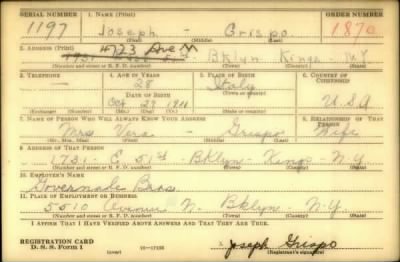 SERIAL NUMBER 1. NAME (Print) ORDER NUMBER
1197 Joseph - Grispo 1870
(First) (Middle) (Last)
2. ADDRESS (Print) 4723 Ave N
1731 E 51st Bklyn Kings N.Y.
(Number and street or R. F. D. number) (Town) (County) (State)
3. TELEPHONE 4. AGE IN YEARS 5. PLACE OF BIRTH 6. COUNTRY OF CITIZENSHIP
28 Italy
DATE OF BIRTH (Town or county)
Oct 29 1911 U.S.A
(Exchange) (Number) (Mo.) (Day) (Yr.) (State or country)
7. NAME OF PERSON WHO WILL ALWAYS KNOW YOUR ADDRESS 8. RELATIONSHIP OF THAT PERSON
Mrs Vera - Grispo Wife
(Mr., Mrs., Miss) (First) (Middle) (Last)
9. ADDRESS OF THAT PERSON
1731 - E. 51st - Bklyn - Kings - N-Y
(Number and street or R. F. D. number) (Town) (County) (State)
10. EMPLOYER'S NAME
Governale Bros.
11. PLACE OF EMPLOYMENT OR BUSINESS
5510 Avenue N. Bklyn - N-Y
(Number and street or R. F. D. number) (Town) (County) (State)
I AFFIRM THAT I HAVE VERIFIED ABOVE ANSWERS AND THAT THEY ARE TRUE.
REGISTRATION CARD
D. S. S. Form 1 16-17105 Joseph Grispo
(over) (Registrant's signature)